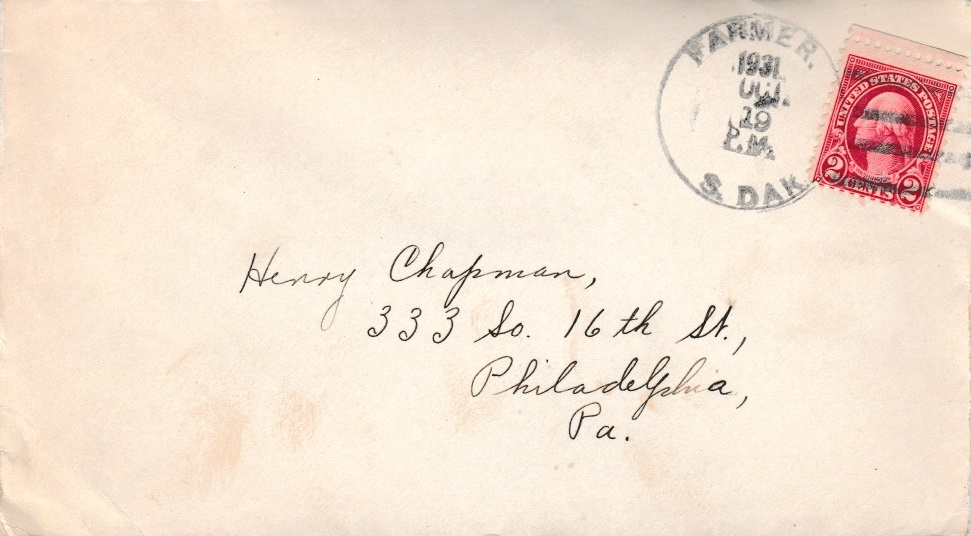 FARMER.
1931
OCT.
19
P.M.
S. DAK.
UNITED STATES POSTAGE
2 CENTS 2
Henry Chapman,
333 So. 16th St.,
Philadelphia,
Pa.